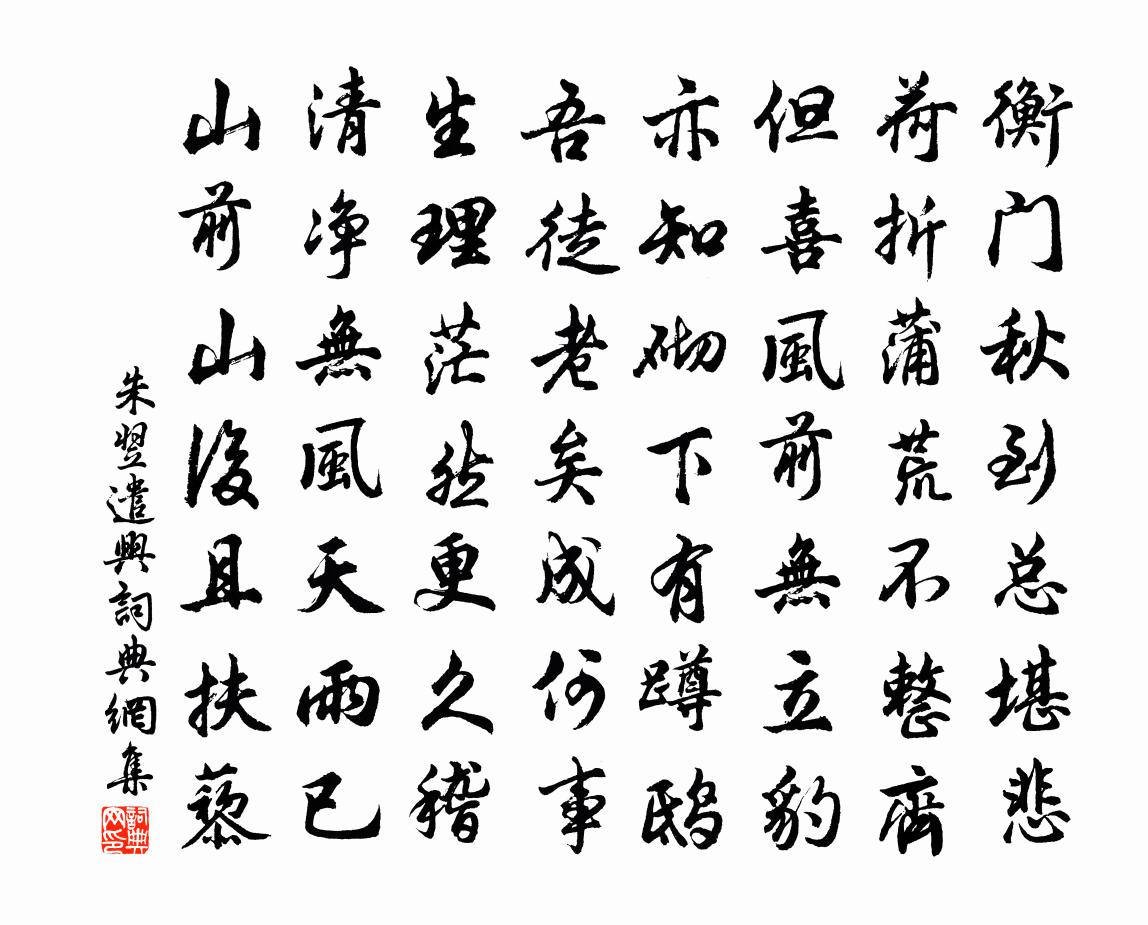 衡门秋到总堪悲
荷折蒲荒不整齊
但喜風前無立豹
亦知砌下有蹲鴟
吾徒老矣成何事
生理茫然更久稽
清净無風天雨已
山前山後且扶藜
朱翌遣興詞典網集
詞典网印